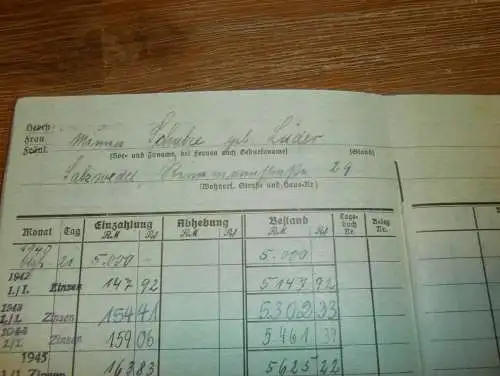 Herrn
Frau
Fräul. Minna Schulze geb. Lüder
(Vor- und Zuname, bei Frauen auch Geburtsname) (Stand)
Salzwedel, 29
(Wohnort, Straße und Haus-Nr.)
Monat Tag Einzahlung Abhebung Bestand Tage- Beleg
RM Rpf RM Rpf RM Rpf buch Nr.
Nr.
21 5.000 - 5.000 -
1942
1./1. Zinsen 147 92 5147 92
1943
1./1. Zinsen 154 41 5.302 33
1944
1./1. Zinsen 159 06 5 461 39
1945
1./1. Zinsen 163 83 5625 22